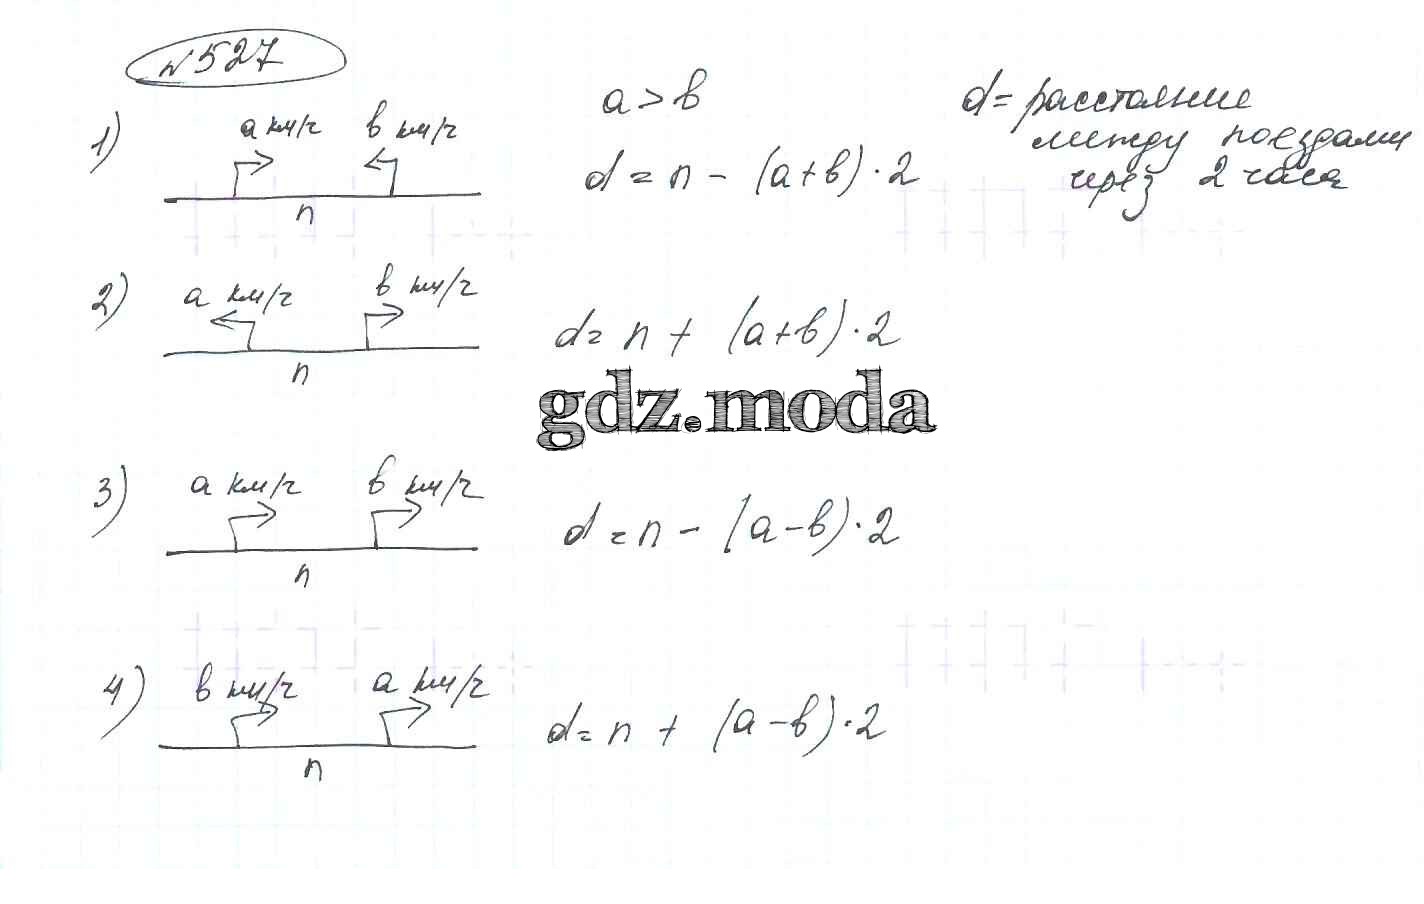 №527
1) a км/ч b км/ч
n
a > b
d = n - (a+b)·2
d = расстояние
между поездами
через 2 часа
2) a км/ч b км/ч
n
d = n + (a+b)·2
gdz.moda
3) a км/ч b км/ч
n
d = n - (a-b)·2
4) b км/ч a км/ч
n
d = n + (a-b)·2